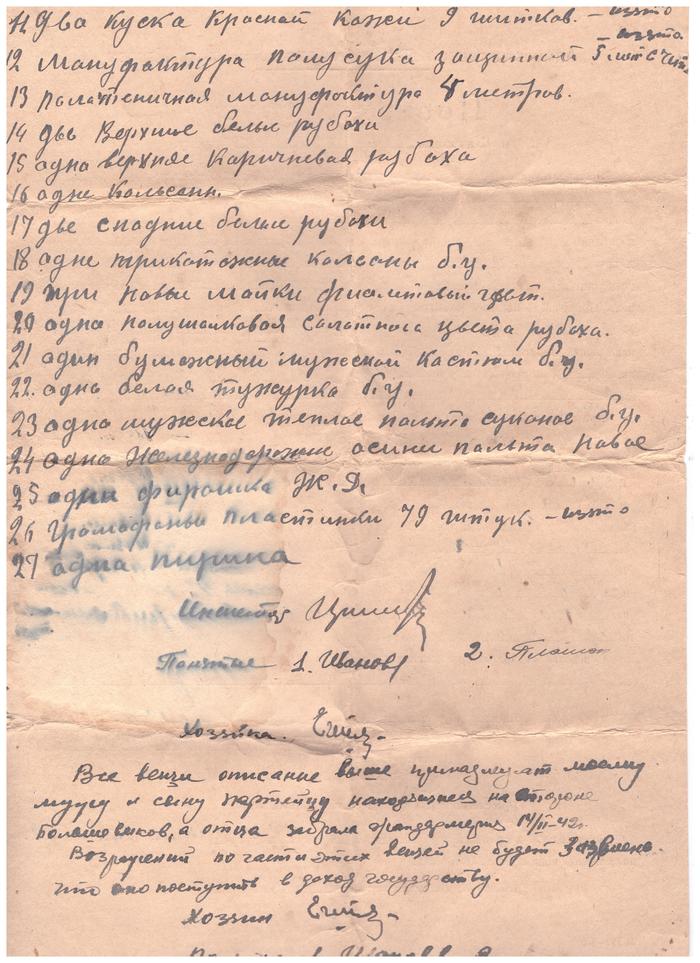 11 Два куска красной кожи 9 штуков. – изято
– изято
12 Мануфактура полусука защитной 5 мет
13 палатеничная мануфактура 8 метров.
14 две верхние белые рубахи
15 одна верхняя каричневая рубаха
16 одне кальсани.
17 две спадние белые рубахи
18 одне трикотожные калсоны б.у.
19 три новые майки фиолтовый цвет.
20 одна полушалковая салатнога цвета рубоха.
21 один бумажный мужской кастюм б.у.
22. одна белая тужурка б.у.
23 одна мужское теплое пальто суконое б.у.
24 одна железнодорожние осини пальта новое
25 одна фирошка Ж.Д.
26 Громофоны пластинки 79 штук. – изято
27 одна пишка
Инспектор
Понятые 1. Иванов 2.
Хозяйка.
Все вещи описание выше принадлежат моему
мужу и сыну партейцу находящиеся на стороне
большевиков, а отца забрала жандармерия 14/II-42г.
Возражений по части этих вещей не будет заявлено.
что оно поступить в доход государству.
Хозяин